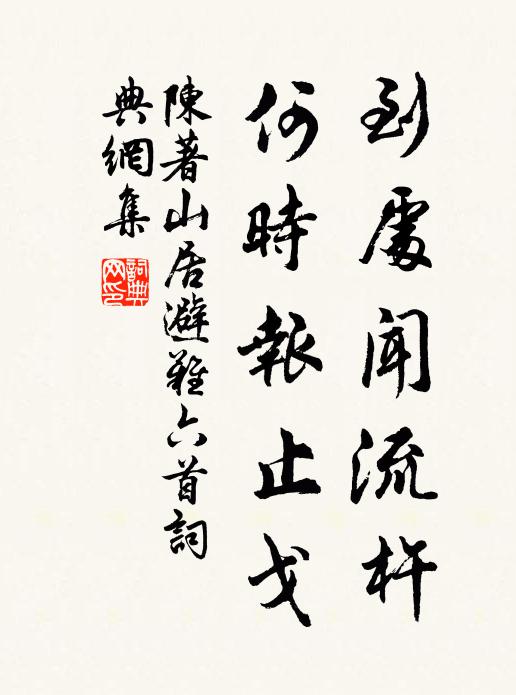 到處聞流杵
何時報止戈
陳著山居避難六首詞
典網集
詞典網印